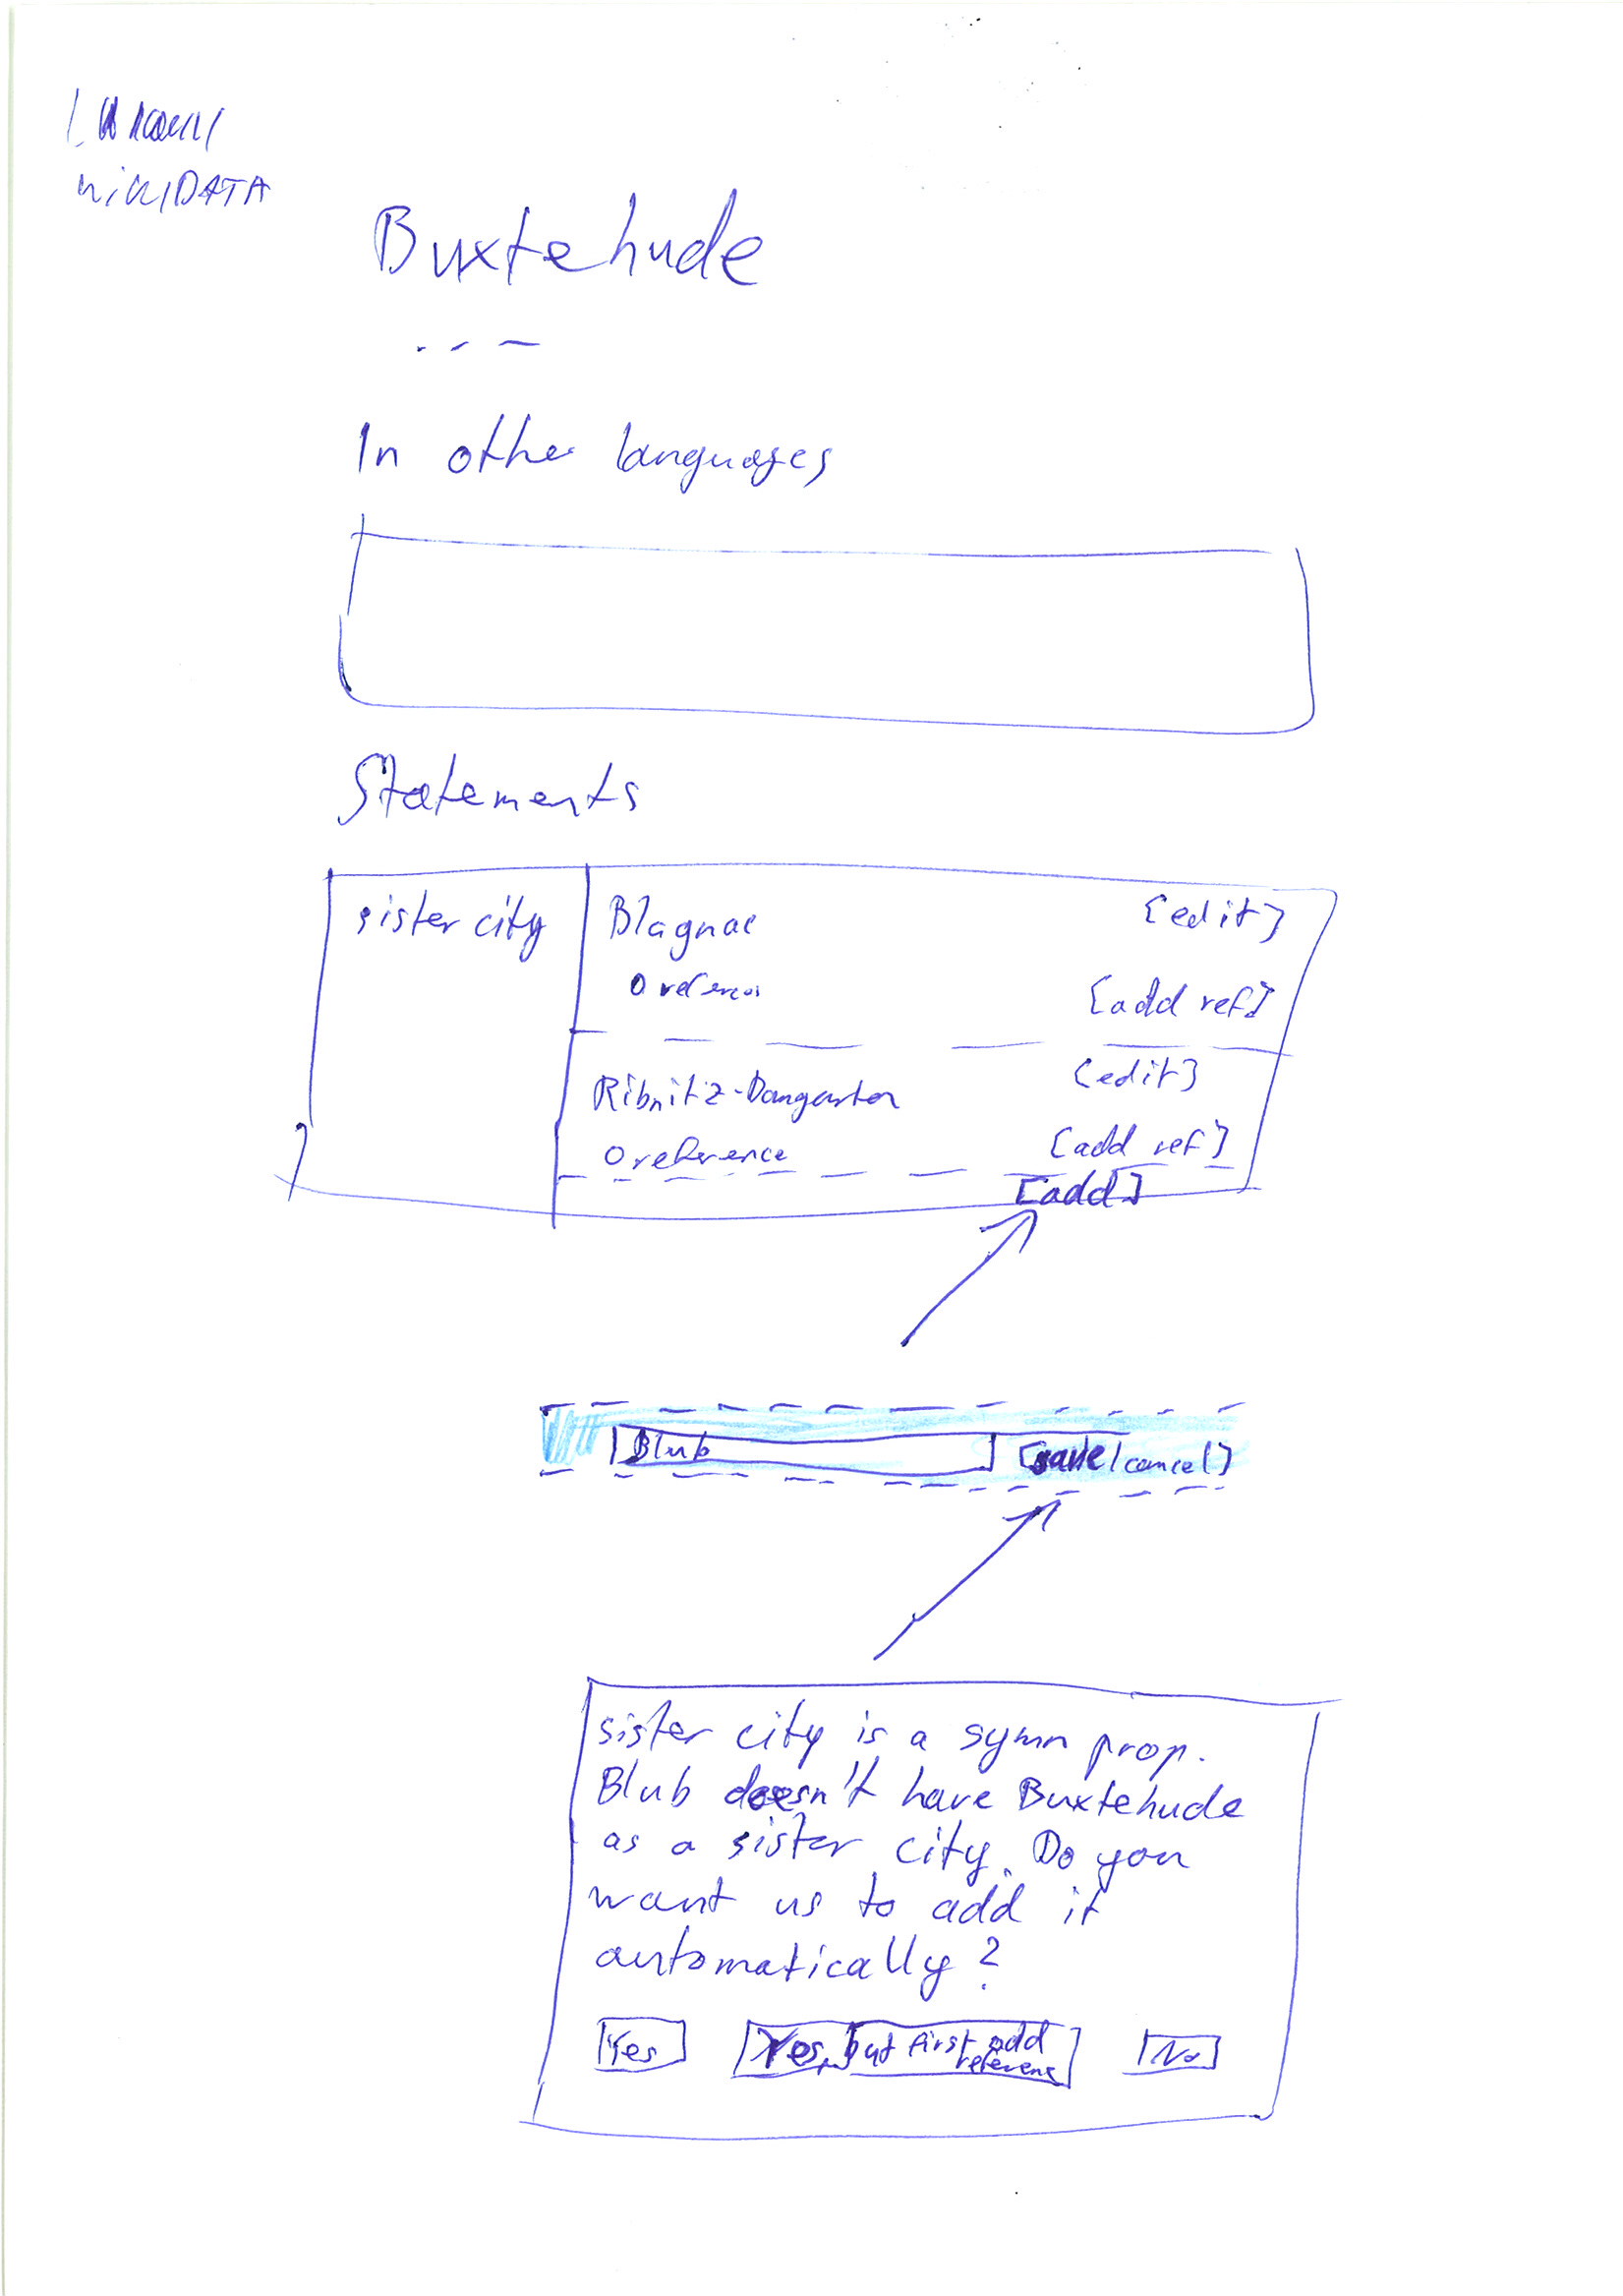 WIKIDATA
Buxtehude
In other languages
Statements
sister city
Blagnac [edit]
0 references [add ref]
Ribnitz-Damgarten [edit]
0 reference [add ref]
[add]
Blub [save/cancel]
sister city is a symm prop.
Blub doesn't have Buxtehude
as a sister city. Do you
want us to add it
automatically?
Yes
Yes, but first add
reference
No